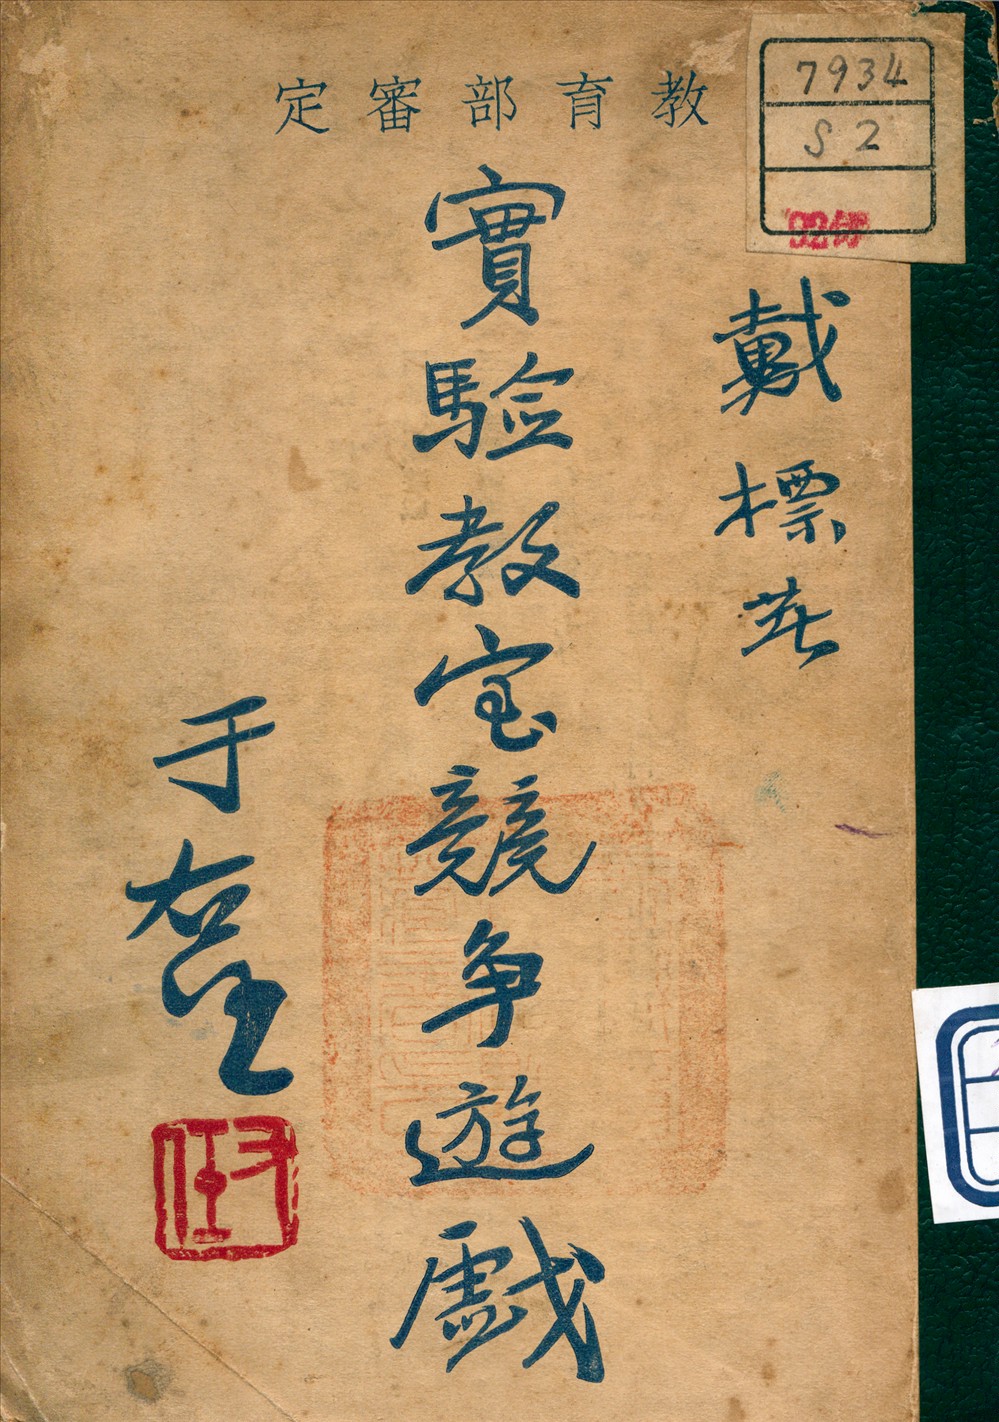 教育部審定
7934
S2
戴標著
實驗教室競爭遊戲
于右任